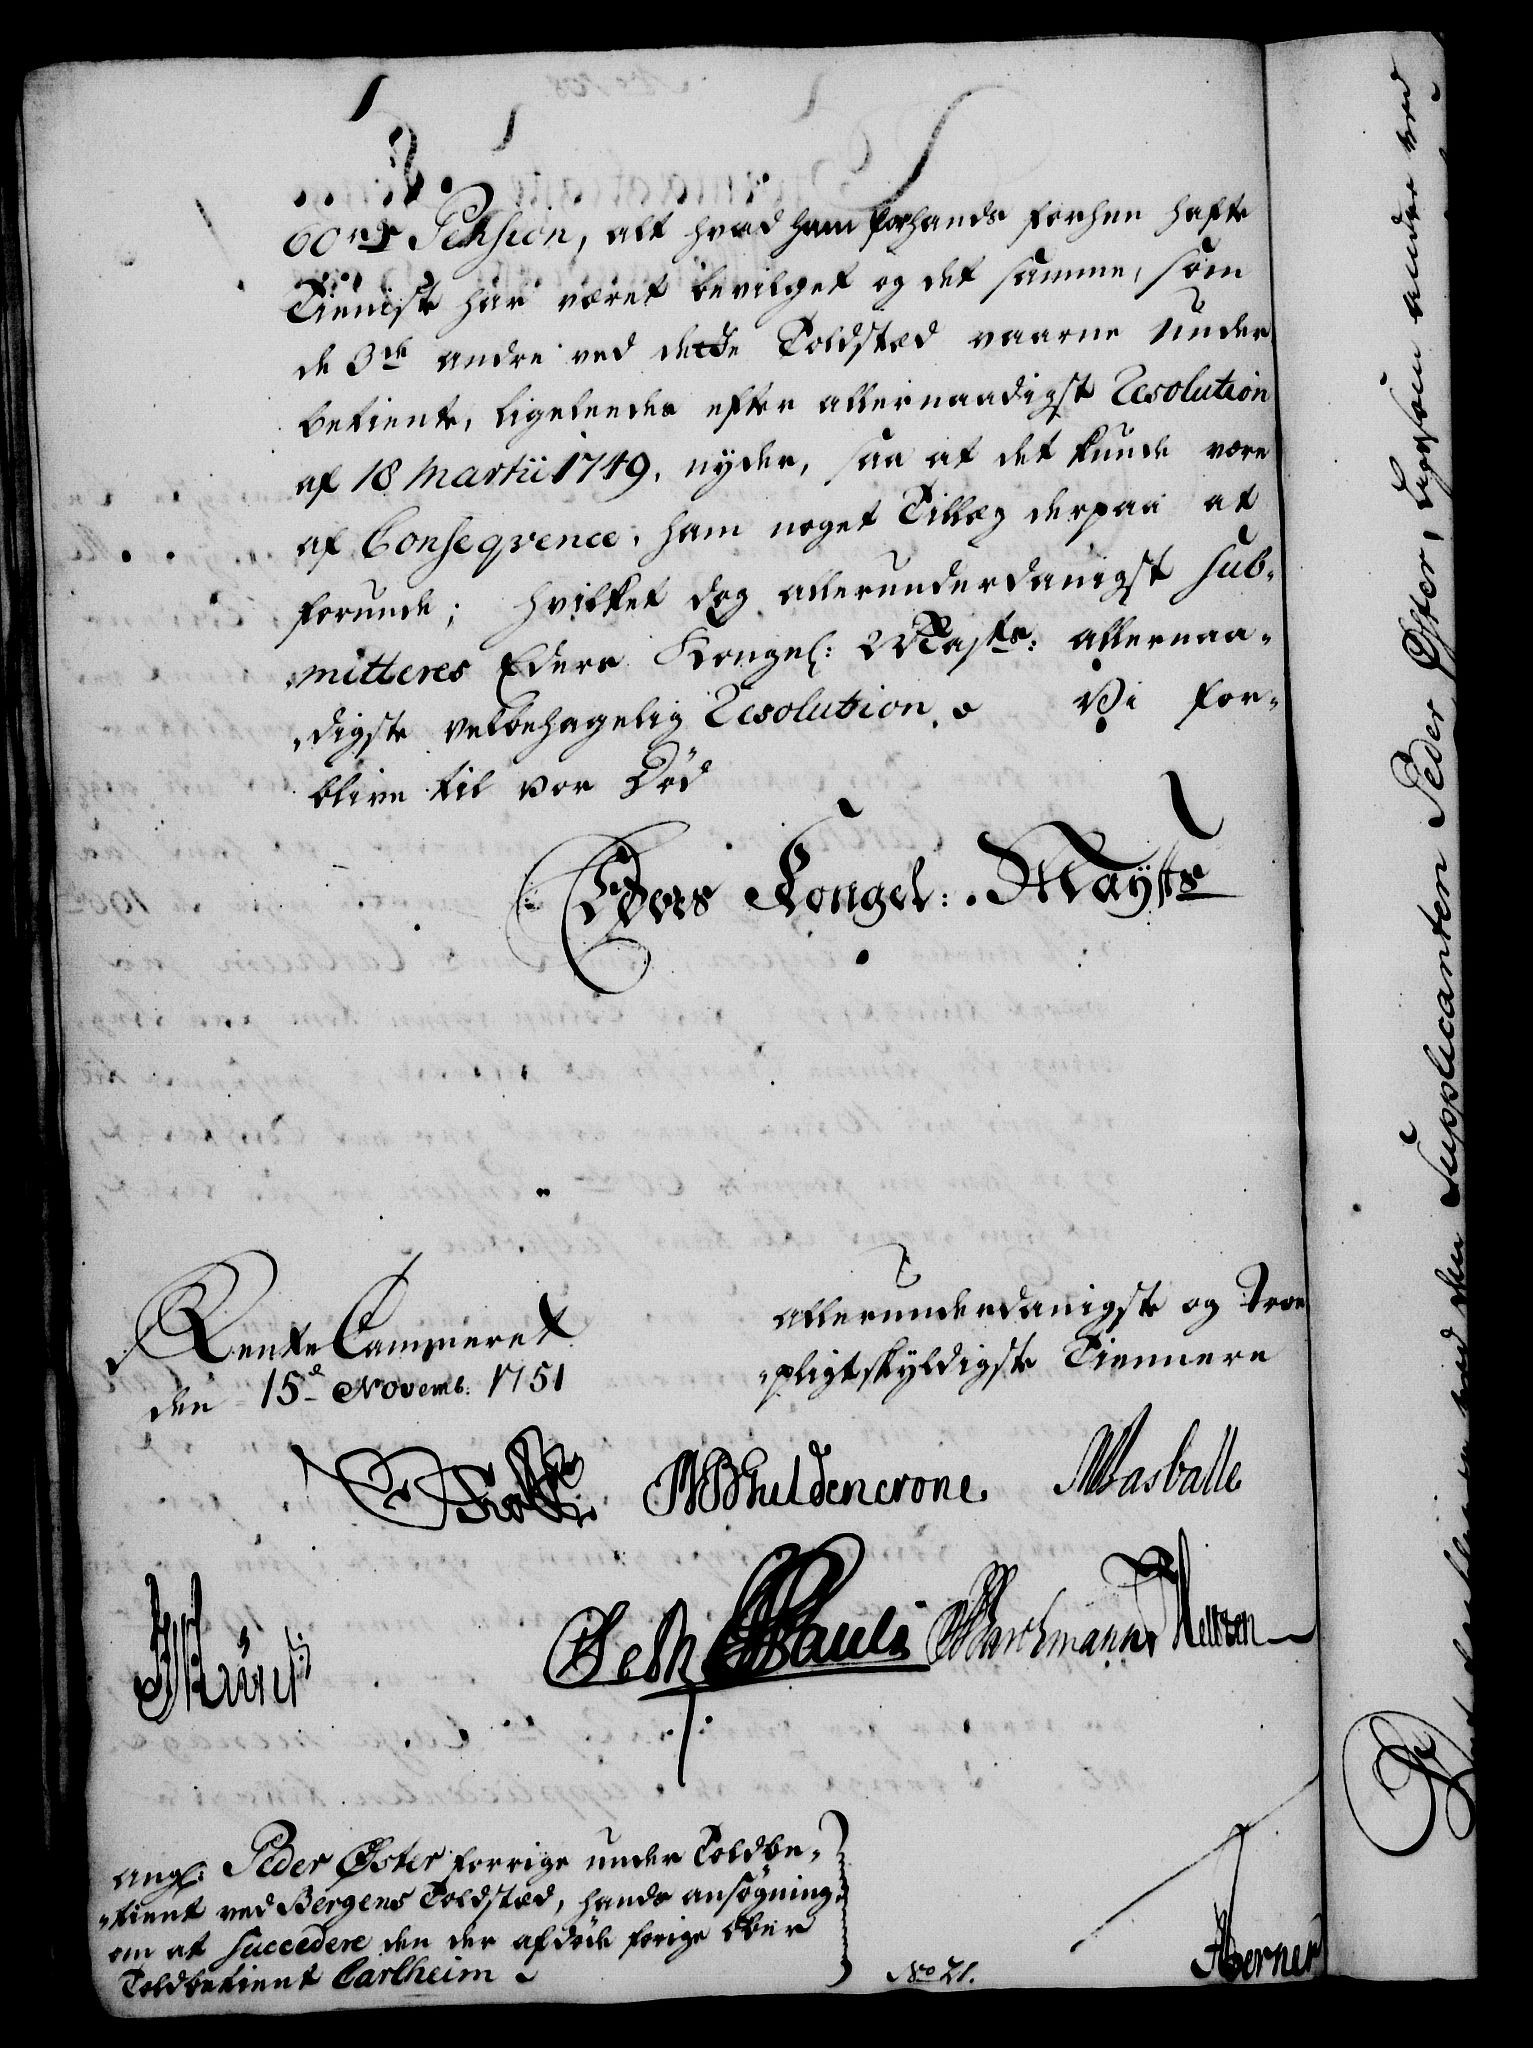 60 rdr Pension, alt hvad ham for hands forhen hafte
Tieniste har været bevilget og det samme, som
de 3de andre ved dette Toldsted vaarne under
betiente, ligeleedes efter allernaadigst Resolution
af 18 Martii 1749. nyder, saa at det kunde være
af Conseqvence, ham noget Tillæg derpaa at
forunde; hvilket dog allerunderdanigst sub-
mitteres Eders Kongel: Mayts: allernaa-
digste velbehagelig Resolution. Vi for-
blive til vor Død
Eders Kongel: Mayts
Rente Cammeret
den 15d Novemb. 1751
allerunderdanigste og Troe
pligtskyldigste Tiennere
Huldencrone
Masballe
Seth Pauli
Marchmann
Ang: Peder Øster forrige under Toldbe-
tient ved Bergens Toldsted, hands ansøgning
om at succedere den der afdøde forige Ober
Toldbetient Carlheim
No 21.
Herner
Supplicanten Peder Øster, ligesom andre ved